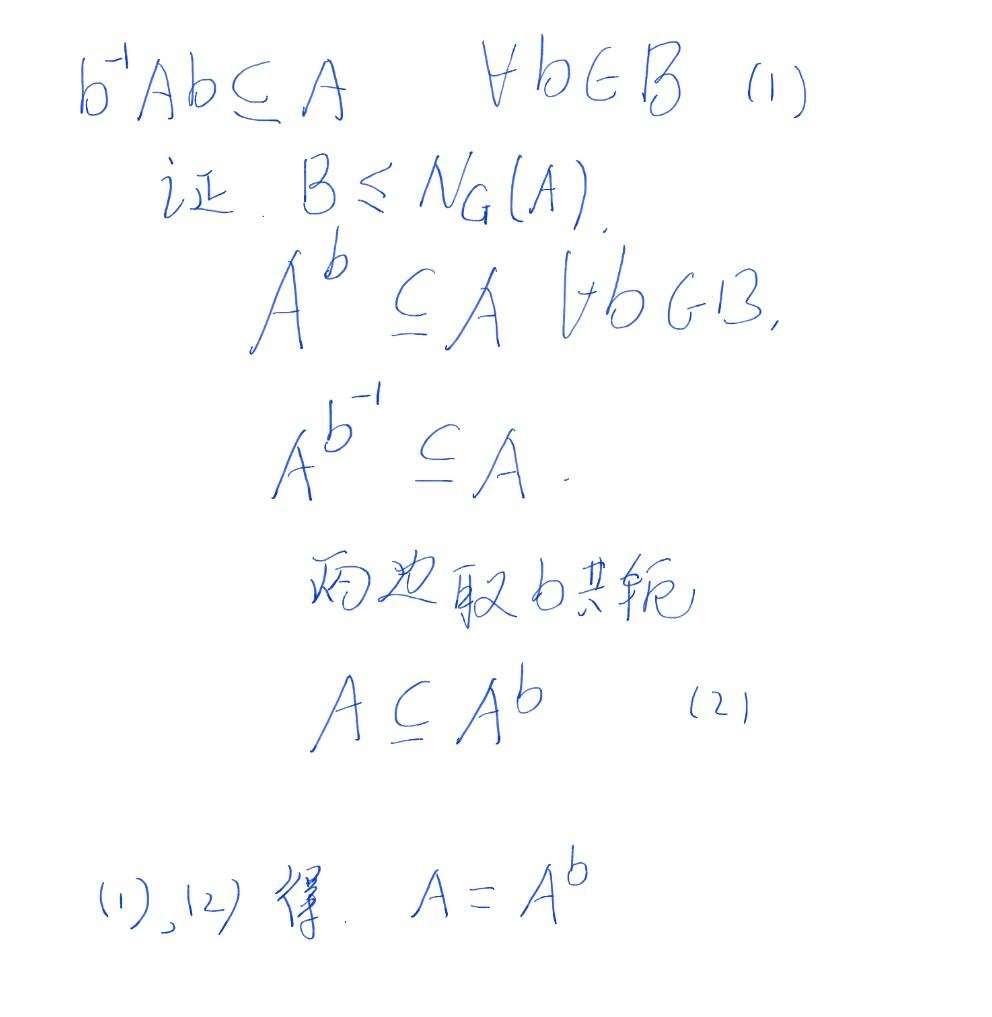 b⁻¹Ab ⊆ A ∀b∈B (1)
证. B ≤ N_G(A).
A^b ⊆ A ∀b∈B,
A^{b⁻¹} ⊆ A.
两边取b共轭
A ⊆ A^b (2)
(1),(2) 得. A = A^b